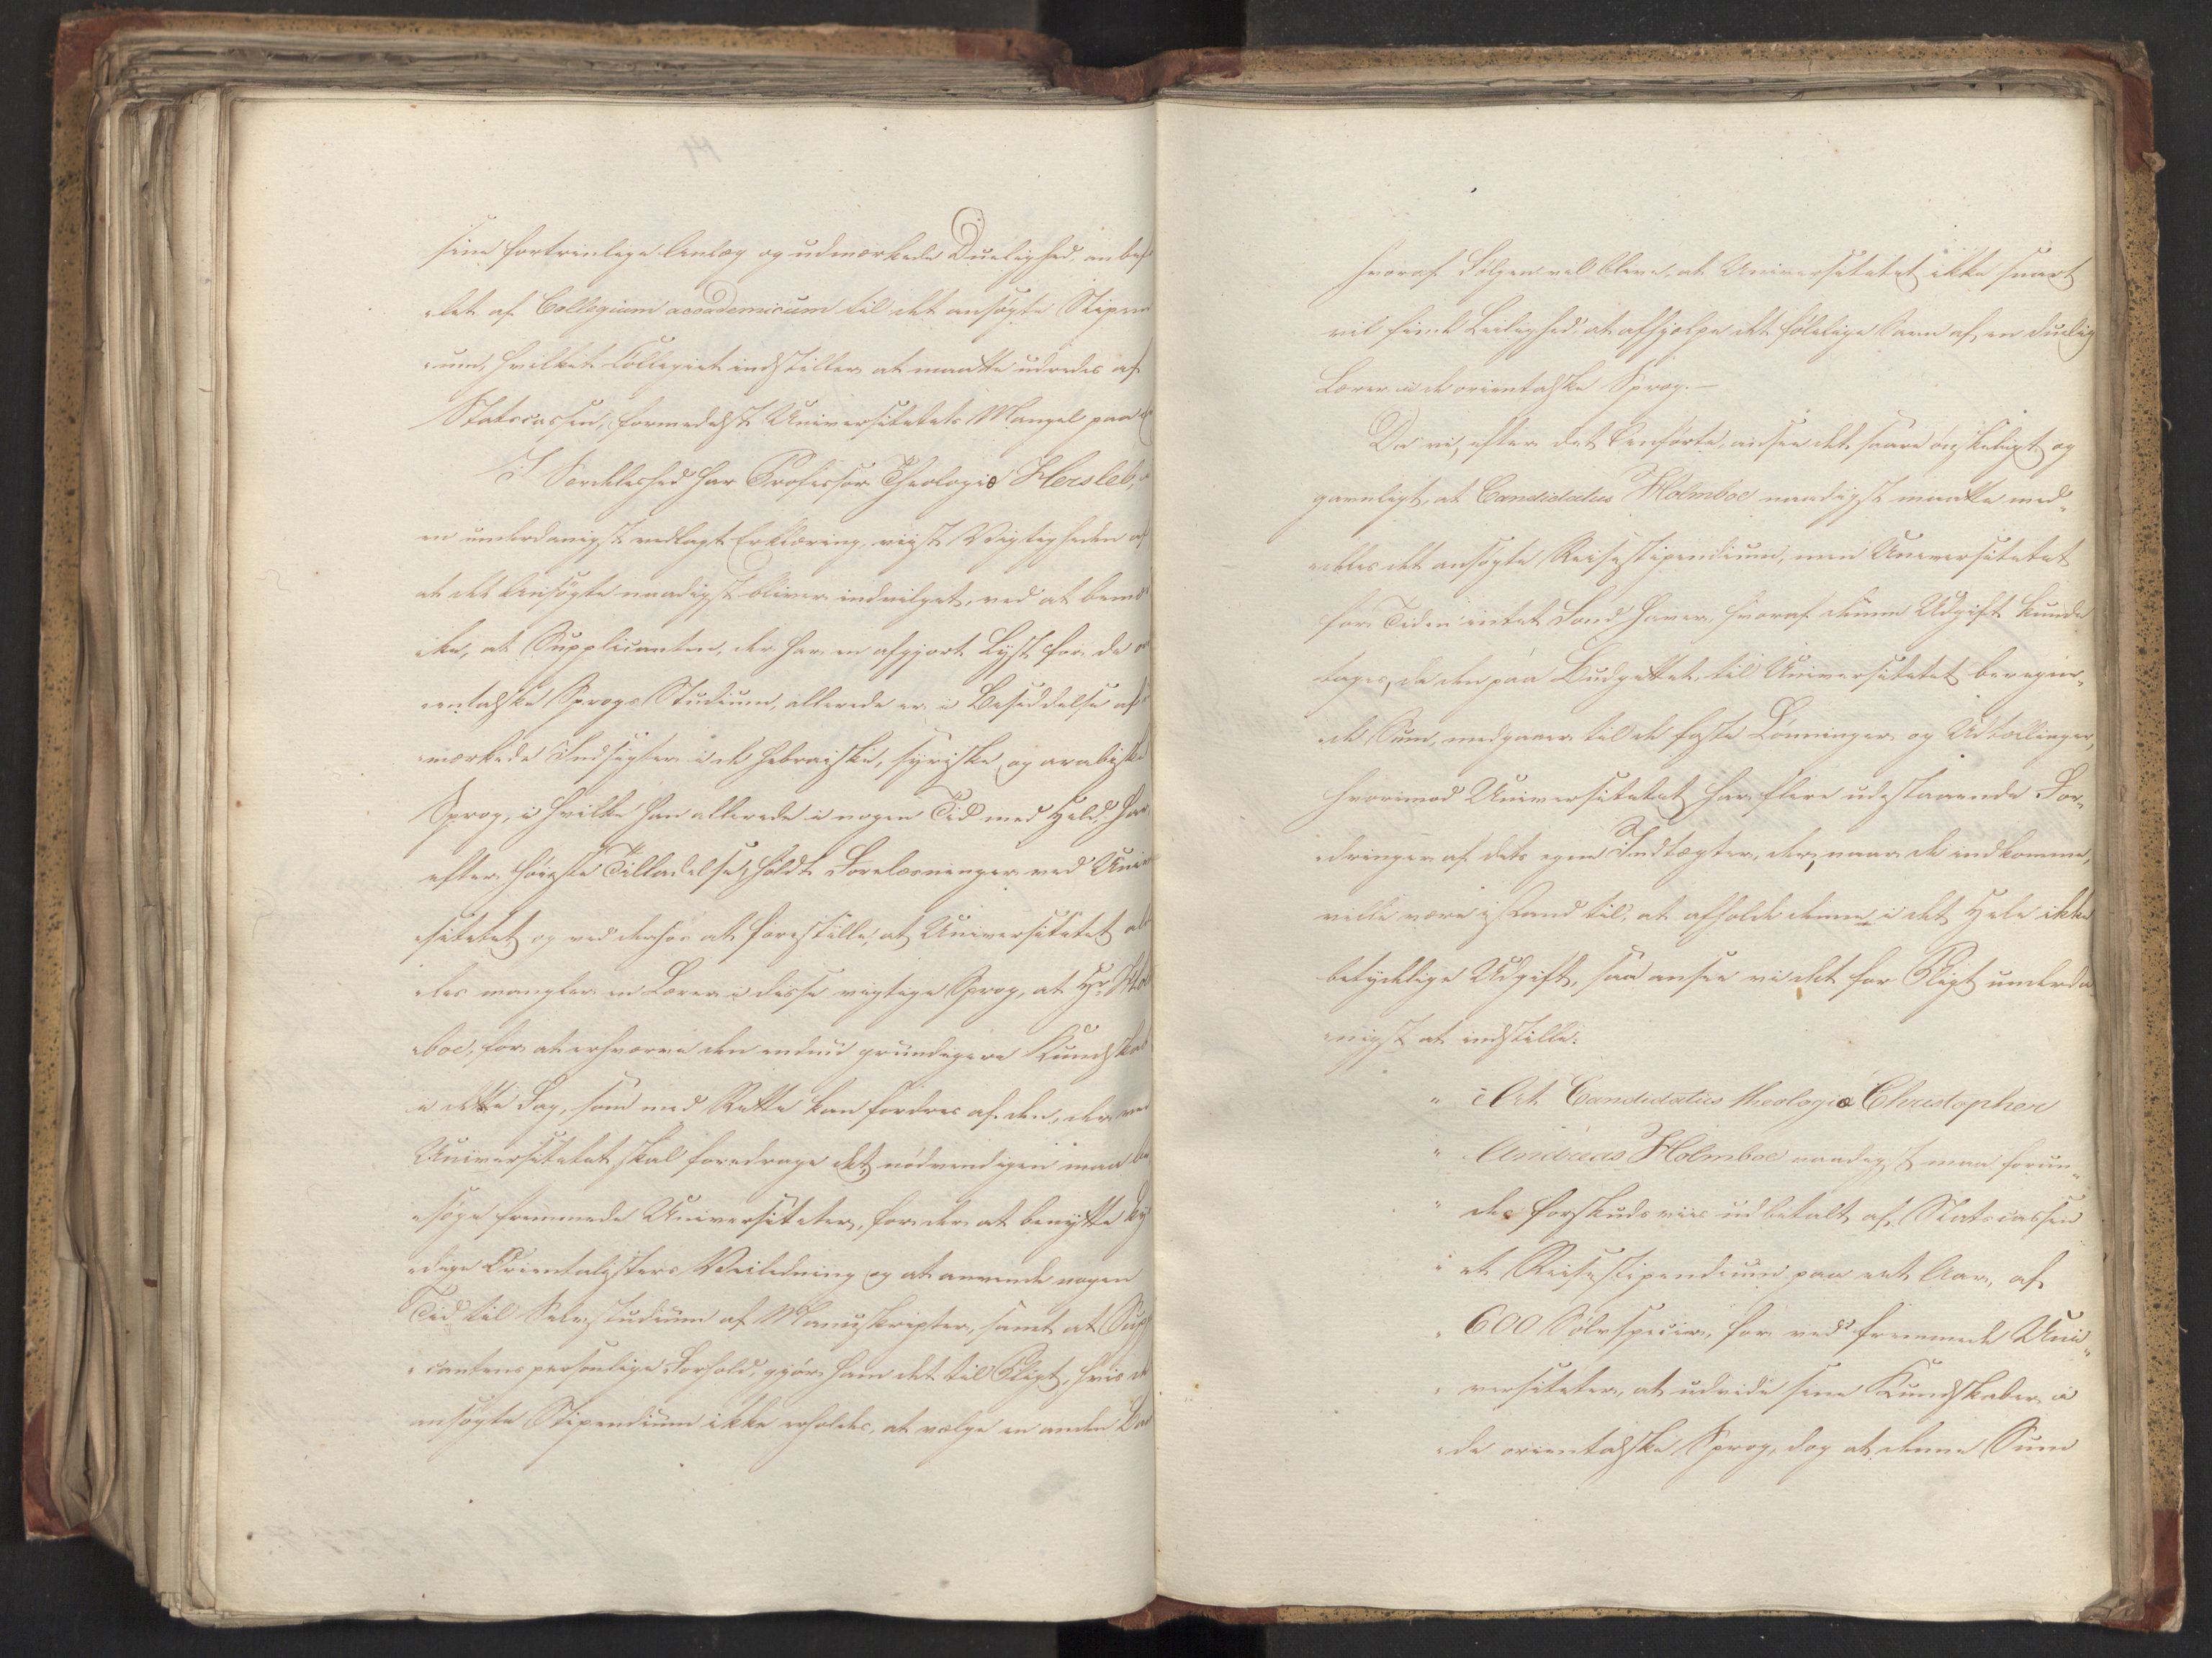 sine fortrinlige Anlæg og udmærkede Duelighed, anbef
„let af Collegium academicum til det ansøgte Stipen
„um, hvilket Collegiet indstiller at maatte udredes af
Statscassen, formedelst Universitetets Mangel paa
I Særdeleshed har Professor Theologiæ Hersleb, i
en underdanigst vedlagt Erklæring, viist Vigtigheden af
at det Ansøgte naadigst bliver indvilget, ved at bemær
„ke, at Supplicanten, der har en afgjort Lyst for de or
„entalske Sprogs Studium, allerede er i Besiddelse af
„mærkede Indsigter i de hebraiske, syriske og arabiske
Sprog, i hvilke han allerede i nogen Tid med Held har
efter høieste Tilladelse, holdt Forelæsninger ved Univer
„sitetet og ved derhos at forestille, at Universitetet al
„les mangler en Lærer i disse vigtige Sprog, at Hr Holm
„boe, for at erhverve den endnu grundigere Kundskab
i dette Fag, som med Rette kan fordres af den, der ved
Universitetet skal foredrage det, nødvendigen maa be
„søge fremmede Universiteter, for der at benytte ky
„dige Orientalisters Veiledning og at anvende nogen
Tid til Selvstudium af Manuskripter, samt at Supp
„cantens personlige Forhold, gjør ham det til Pligt, hvis det
ansøgte Stipendium ikke erholdes, at vælge en anden
hvoraf Følgen vel bleve, at Universitetet ikke snart
vil finde Leilighed at afhjælpe det følelige Savn af en duelig
Lærer i de orientalske Sprog. —
Da vi, efter det Anførte, ansee det saare ønskeligt og
gavnligt, at Candidatus Holmboe naadigst maatte med„
„deles det ansøgte Reisestipendium, men Universitetet
for Tiden intet Fond haver, hvoraf denne Udgift kunde
tages, da den paa Budgettet til Universitetet beregne„
„de Sum, medgaaer til de faste Lønninger og Udtællinger,
hvorimod Universitetet har flere udestaaende For„
„dringer af dets egne Indtægter, der, naar de indkomme,
ville være istand til, at afholde denne i det Hele ikke
betydelige Udgift, saa ansee vi det for Pligt underda„
„nigst at indstille:
„ At Candidatus theologiæ Christopher
„ Andreas Holmboe naadigst maa forun„
„ des forskudsviis udbetalt af Statscassen
„ et Reisestipendium paa eet Aar, af
„ 600 Sølvspecier, for ved fremmede Uni„
„ versiteter, at udvide sine Kundskaber i
„ de orientalske Sprog, dog at denne Sum